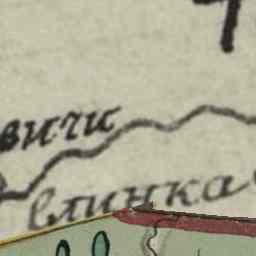 вичи
влинка